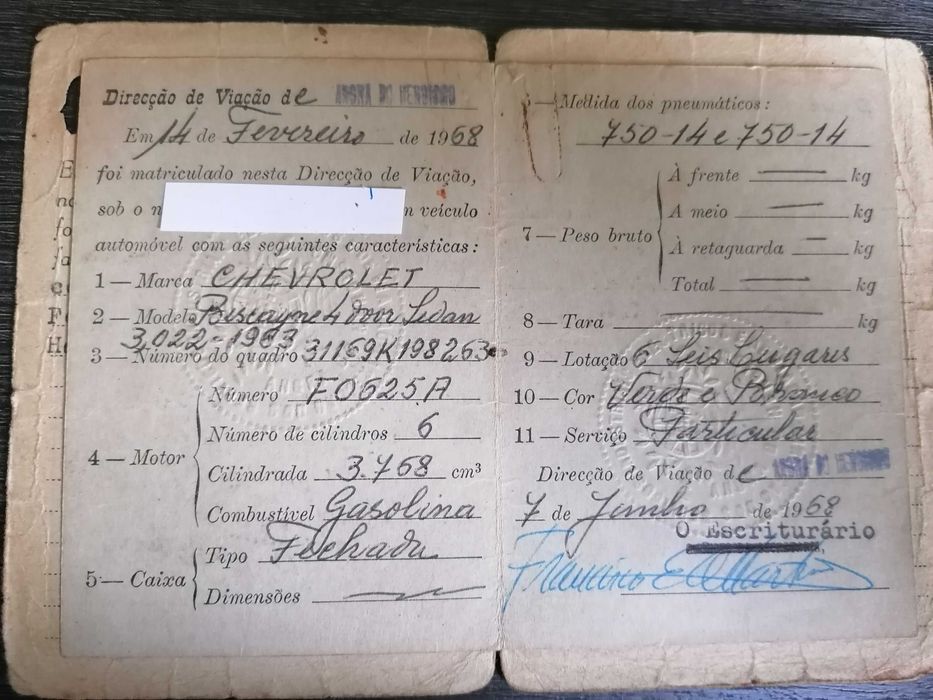 Direcção de Viação de ANGRA DO HEROISMO
Em 14 de Fevereiro de 1968
foi matriculado nesta Direcção de Viação,
sob o n veículo
automóvel com as seguintes características:
1 — Marca CHEVROLET
2 — Modelo Biscayne 4 door Sedan
3.022-1963
3 — Número do quadro 31169K198263
4 — Motor
Número F0625A
Número de cilindros 6
Cilindrada 3.768 cm³
Combustível Gasolina
5 — Caixa
Tipo Fechada
Dimensões
6 — Medida dos pneumáticos:
750-14 e 750-14
7 — Peso bruto
À frente kg
A meio kg
À retaguarda kg
Total kg
8 — Tara kg
9 — Lotação 6 Seis Lugares
10 — Cor Verde e Branco
11 — Serviço Particular
Direcção de Viação de ANGRA DO HEROISMO
7 de Junho de 1968
O Escriturário
Francisco E